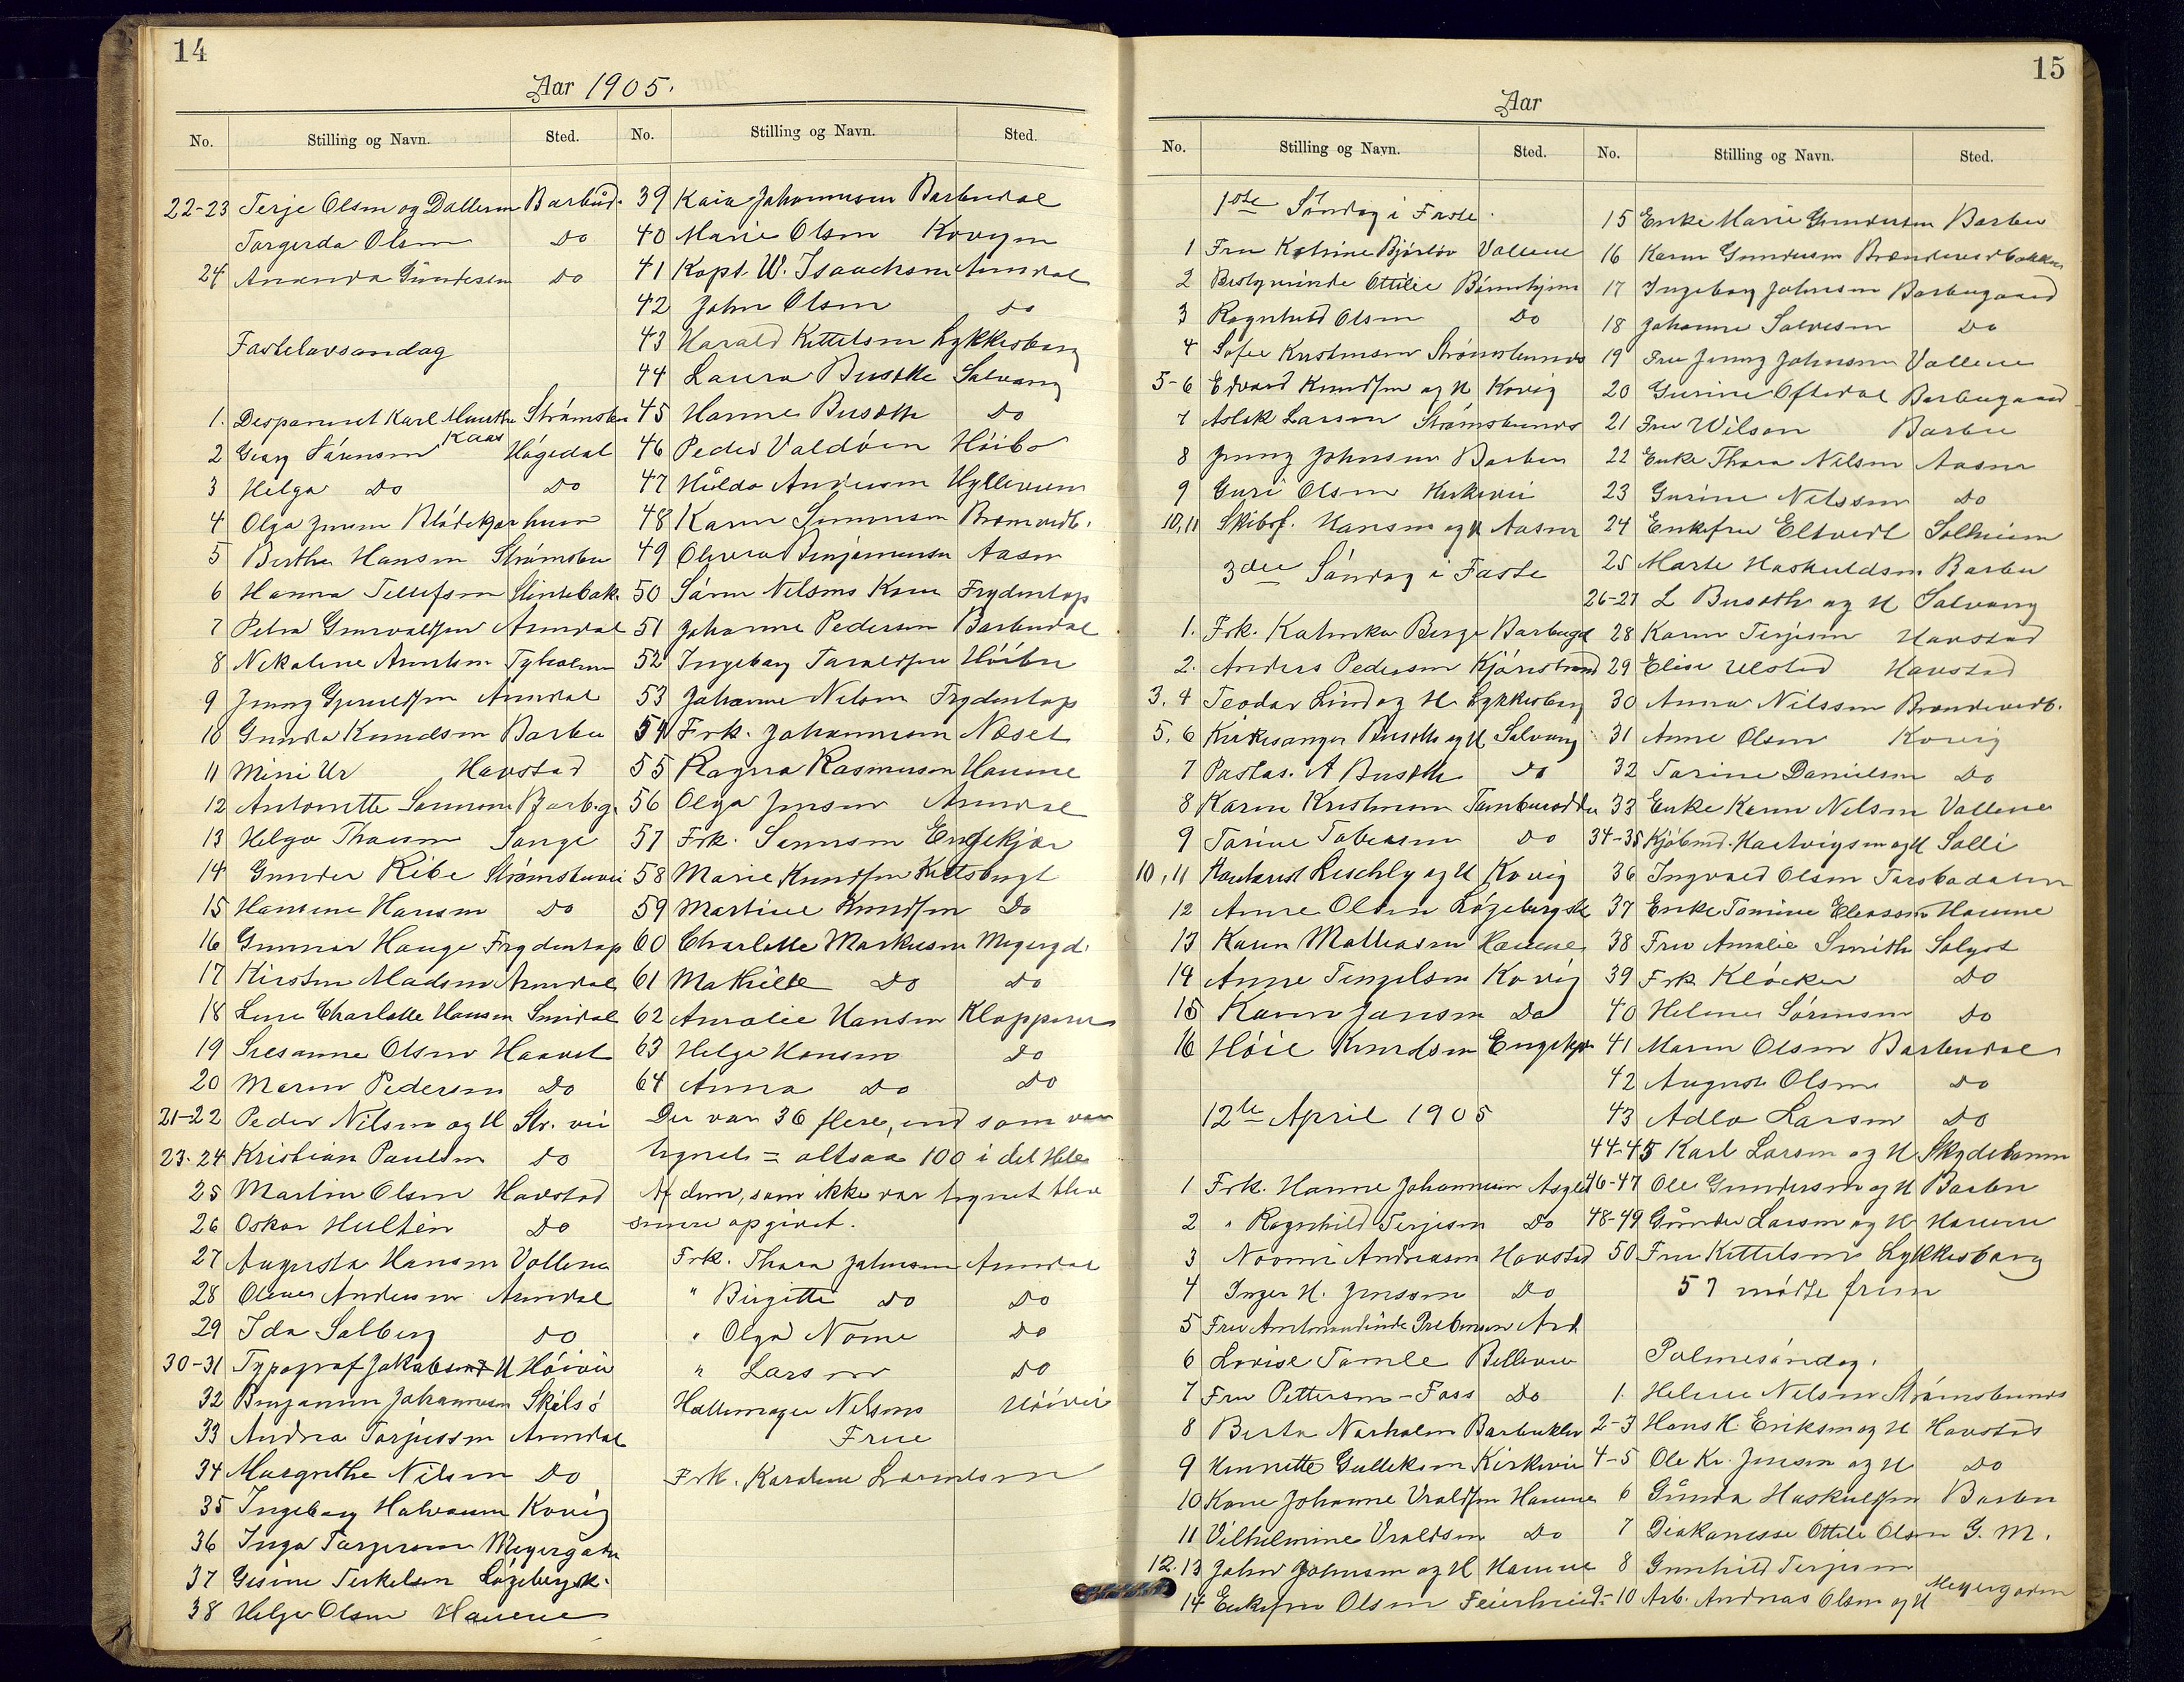 14
Aar 1905.
No. Stilling og Navn. Sted. No. Stilling og Navn. Sted.
22-23 Terje Olsen og Datteren Barbud.
Torgerda Olsen Do
24 Amanda Gundersen Do
Fastelavsøndag
1. Desparment Karl Strømsbu
Kaas
2 Georg Sørensen Høgedal
3 Helga Do Do
4 Olga Jensen Blødekjær huus
5 Berthe Hansen Strømsbu
6 Hanna Tellefsen Slintebak.
7 Petra Arendal
8 Nikoline Tyholmen
9 Jenny Arendal
10 Gunda Knudsen Barbu
11 Mini Ur Havstad
12 Antonette Barbg.
13 Helga Songe
14 Gunder Ribe Strømsbuvei
15 Hansine Hansen Do
16 Gunnar Hauge Frydentop
17 Kirsten Madsen Arendal
18 Lene Charlotte Hansen
19 Susanne Olsen
20 Maren Pedersen Do
21-22 Peder Nilsen og H Str. vei
23-24 Kristian Paulsen Do
25 Martin Olsen Havstad
26 Oskar Hultén Do
27 Augusta Hansen Vollene
28 Olene Andersen Arendal
29 Ida Salberg Do
30-31 Typograf Jakobsen H Høivei
32 Benjamin Johannesen Skilsø
33 Andrea Torjussen Arendal
34 Margrethe Nilsen Do
35 Ingeborg Halvorsen Kovig
36 Inga Torgersen Meyergaden
37 Gisine Terkelsen Løgebergsk.
38 Helje Olsen Hauene
39 Kaia Johannesen Barbudal
40 Marie Olsen
41 Kapt. W. Isaachsen Arendal
42 John Olsen Do
43 Harald Kittelsen Lykkesborg
44 Laura Busoth Solvang
45 Hanne Busoth Do
46 Peder Valdøen Høibo
47 Hulda Andersen
48 Karen Bromvedb.
49 Benjaminsen Aasen
50 Søren Nilsens Kone Frydentop
51 Johanne Pedersen Barbudal
52 Ingeborg Taraldsen
53 Johanne Nilsen Frydentop
54 Frk. Johannesen Næset
55 Ragna Rasmussen Hauene
56 Olga Jensen Arendal
57 Frk. Engekjær
58 Marie Knudsen
59 Martine Knudsen Do
60 Charlotte Markusen Meyergd.
61 Mathilde Do Do
62 Amalie Hansen Klopperen
63 Helga Hansen Do
64 Anna Do Do
Der var 36 flere, end som var
tegnet = altsaa 100 i det Hele
Af dem, som ikke var tegnet blev
senere opgivet.
Frk. Thora Johnsen Arendal
" Birgitte Do Do
" Olga Nome Do
" Larsen Do
Hattemager Nilsens Høivei
Frue
Frk. Karoline
15
Aar
No. Stilling og Navn. Sted. No. Stilling og Navn. Sted.
1ste Søndag i Faste.
1 Fru Katrine Vollene
2 Bestyrerinde Ottilie
3 Ragnhild Olsen Do
4 Sofie Kristensen Strømsbunds
5-6 Edvard Knudsen og H Kovig
7 Aslak Larsen Strømsbunds
8 Jenny Johnsen Barbu
9 Guri Olsen Kirkevei
10,11 Skibsf. Hansen og H Aasen
3die Søndag i Faste
1. Frk. Katinka Berge Barbugd
2. Anders Pedersen
3.4 Teodor Lind og H. Lykkesborg
5.6 Kirkesanger Busoth og H Solvang
7 Postas. A Busoth Do
8 Karen Kristensen
9 Torine Tobiasen Do
10,11 og H Kovig
12 Anne Olsen Løgebergsk
13 Karen Mathiasen Hauene
14 Anne Kovig
15 Karen Jansen Do
16 Høie Knudsen Engekjær
12te April 1905
1 Frk. Hanne Johannesen
2 " Ragnhild Terjesen Do
3 Noomi Andreasen Havstad
4 Inger H. Jenssen Do
5 Fru Amtmandinde Prebensen Ard
6 Lovise Tomle Bellevue
7 Fru Pettersen-Foss Do
8 Berta Norholm Barbuklev
9 Henriette Gulleksen Kirkevei
10 Kone Johanne Uraldsen Hauene
11 Vilhelmine Uraldsen Do
12.13 John Johnsen og H Hauene
14 Enkefru Olsen Feierheid.
15 Enke Marie Gundersen Barbu
16 Karen Gundersen Brændevedbakken
17 Ingeborg Johnsen Barbugaard
18 Johanne Salvesen Do
19 Fru Jenny Johnsen Vollene
20 Gurine Oftedal Barbugaard
21 Fru Wilson Barbu
22 Enke Thora Nilsen Aasen
23 Gurine Nilssen Do
24 Enkefru Eltvedt Solheim
25 Marte Haskuldsen Barbu
26-27 L Busoth og H Solvang
28 Karen Terjesen Havstad
29 Elise Ulstad Havstad
30 Anna Nilssen Brændevedb.
31 Anne Olsen Kovig
32 Torine Danielsen Do
33 Enke Karen Nilsen Vollene
34-35 Kjøbmd. Hartvigsen og H Solli
36 Ingvald Olsen Torsbudalen
37 Enke Tomine Eliassen Hauene
38 Fru Amalie Smith
39 Frk Kløcker Do
40 Helene Sørensen Do
41 Maren Olsen Barbudal
42 Auguste Olsen Do
43 Adla Larsen Do
44-45 Karl Larsen og H Skydebanen
46-47 Ole Gundersen og H Barbu
48-49 Gunder Larsen og H Hauene
50 Fru Kittelsen Lykkesborg
57 mødte frem
Palmesøndag.
1. Helene Nilsen Strømsbunds
2-3 Hans H. Eriksen og H Havstad
4-5 Ole Kr. Jensen og H Do
6 Gunda Haskuldsen Barbu
7 Diakonesse Ottile Olsen G. M.
8 Gunhild Terjesen
9-10 Arb. Andreas Olsen og H Meyergaden